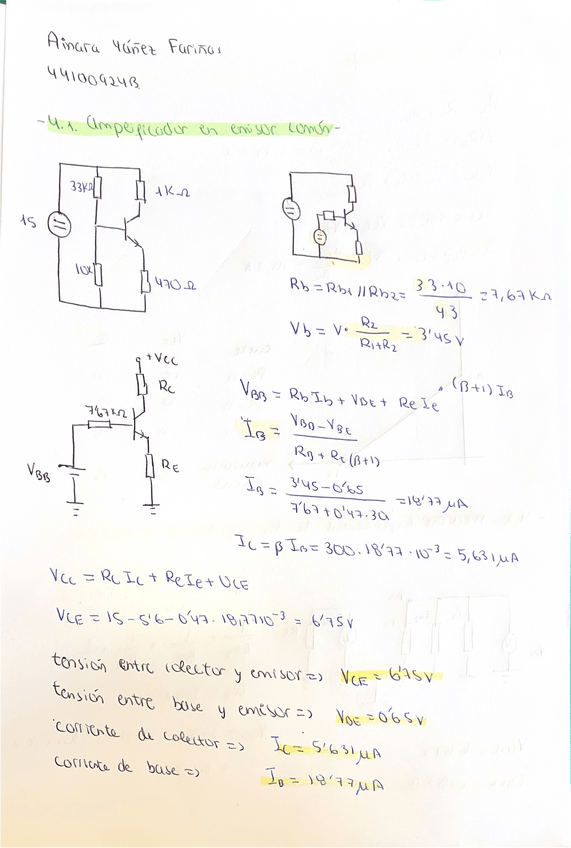 Ainara Yáñez Fariñas
44100924B
-4.1. Amplificador en emisor común-
33KΩ
1KΩ
15
10K
470Ω
Rb = Rb1 // Rb2 = 33·10 / 43 = 7,67 KΩ
Vb = V· R2 / R1+R2 = 3'45 V
+Vcc
Rc
7'67KΩ
RE
VBB
VBB = Rb Ib + VBE + Re Ie (β+1) IB
IB = VBB - VBE / RB + RE (β+1)
IB = 3'45 - 0'65 / 7'67 + 0'47·301 = 18'77 μA
Ic = β IB = 300 · 18'77 · 10^-3 = 5,631 μA
Vcc = Rc Ic + Re Ie + VCE
VCE = 15 - 5'6 - 0'47 · 18,77 10^-3 = 6'75 V
tensión entre colector y emisor => VCE = 6'75 V
tensión entre base y emisor => VBE = 0'65 V
corriente de colector => Ic = 5'631 μA
corriente de base => IB = 18'77 μA